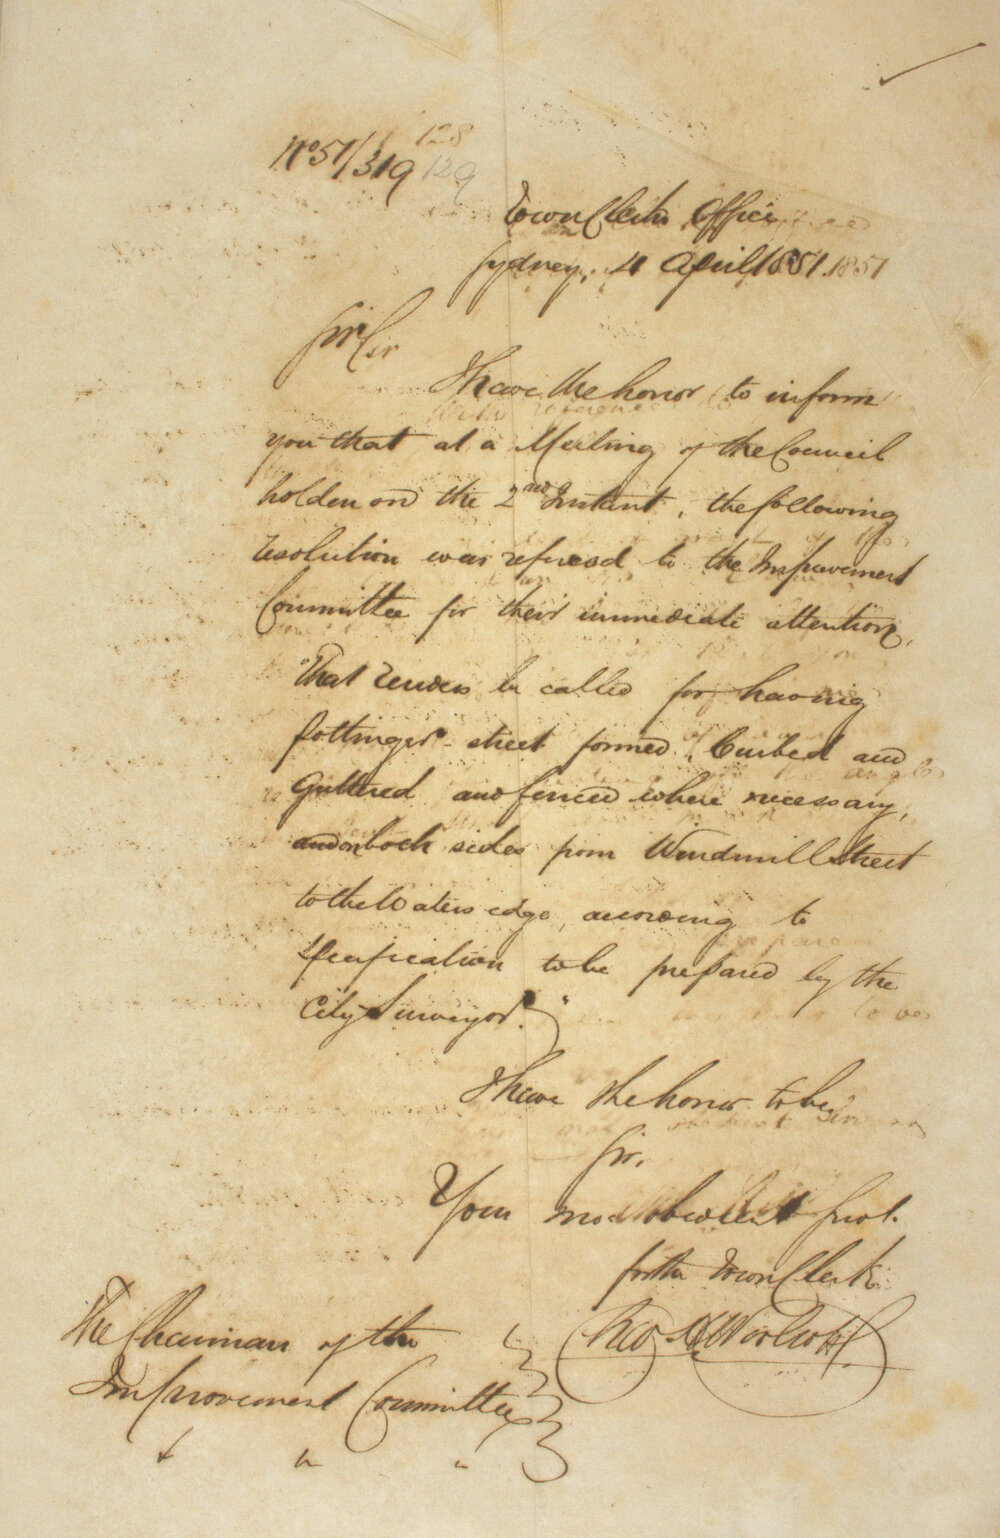 No 51/319
128
129
Town Clerks Office
Sydney, 4 April 1851.
Sir
I have the honor to inform
you that at a Meeting of the Council
holden on the 2nd Instant, the following
resolution was referred to the Improvement
Committee for their immediate attention,
"That Tenders be called for having
Pottinger street formed, Curbed and
Guttered and fenced where necessary,
and on both sides from Windmill Street
to the Waters edge, according to
specification to be prepared by the
City Surveyor."
I have the honor to be
Sir,
Your most obedient Servt.
for the Town Clerk
Chas H Woolcott
The Chairman of the
Improvement Committee